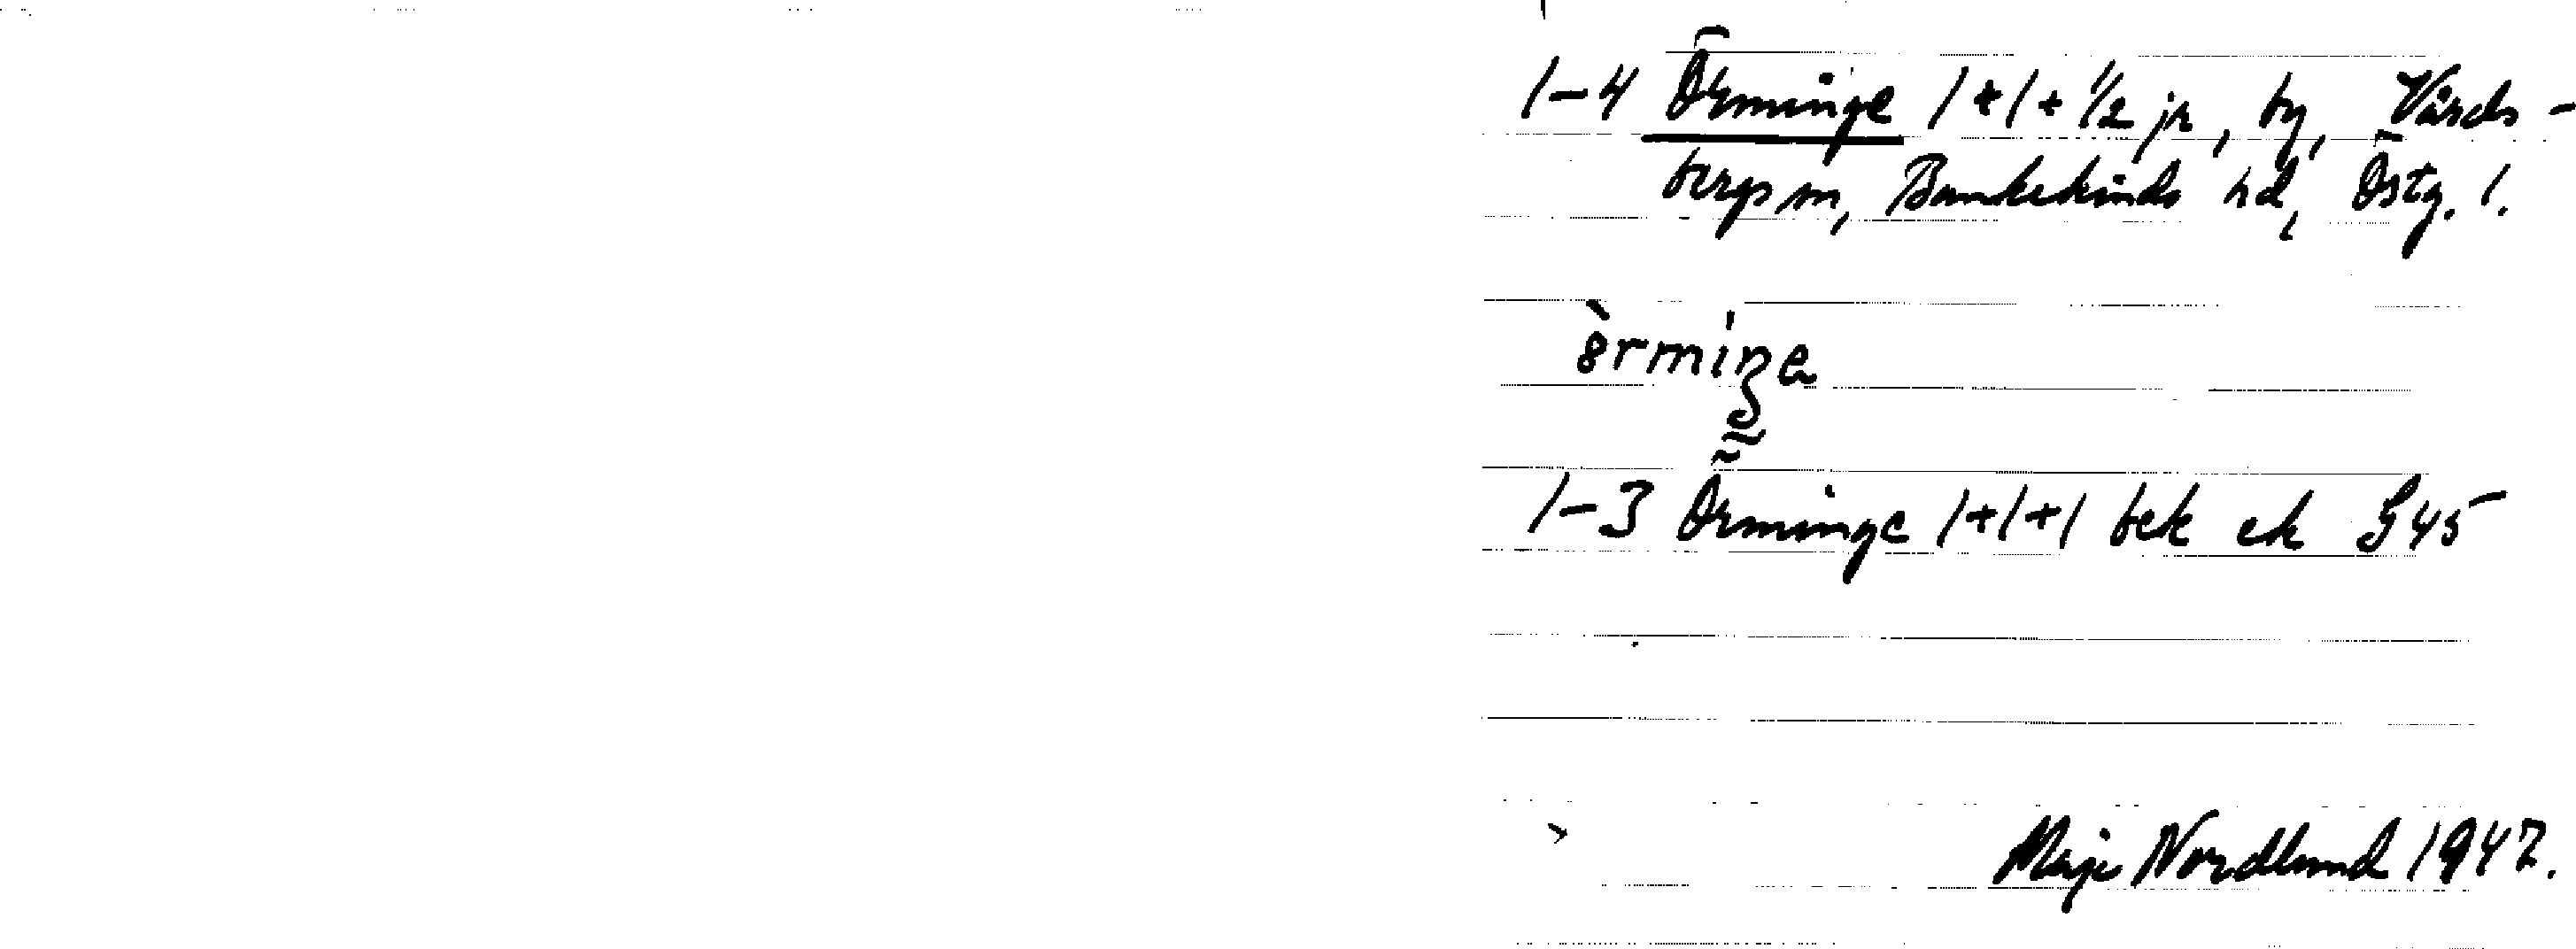 1-4 Örminge 1+1+½ jr, by, Vårds-
bergs sn, Bankekinds hd, Östg. l.
1-3 Örminge 1+1+1 bek ek G45
Maja Nordlund 1947.